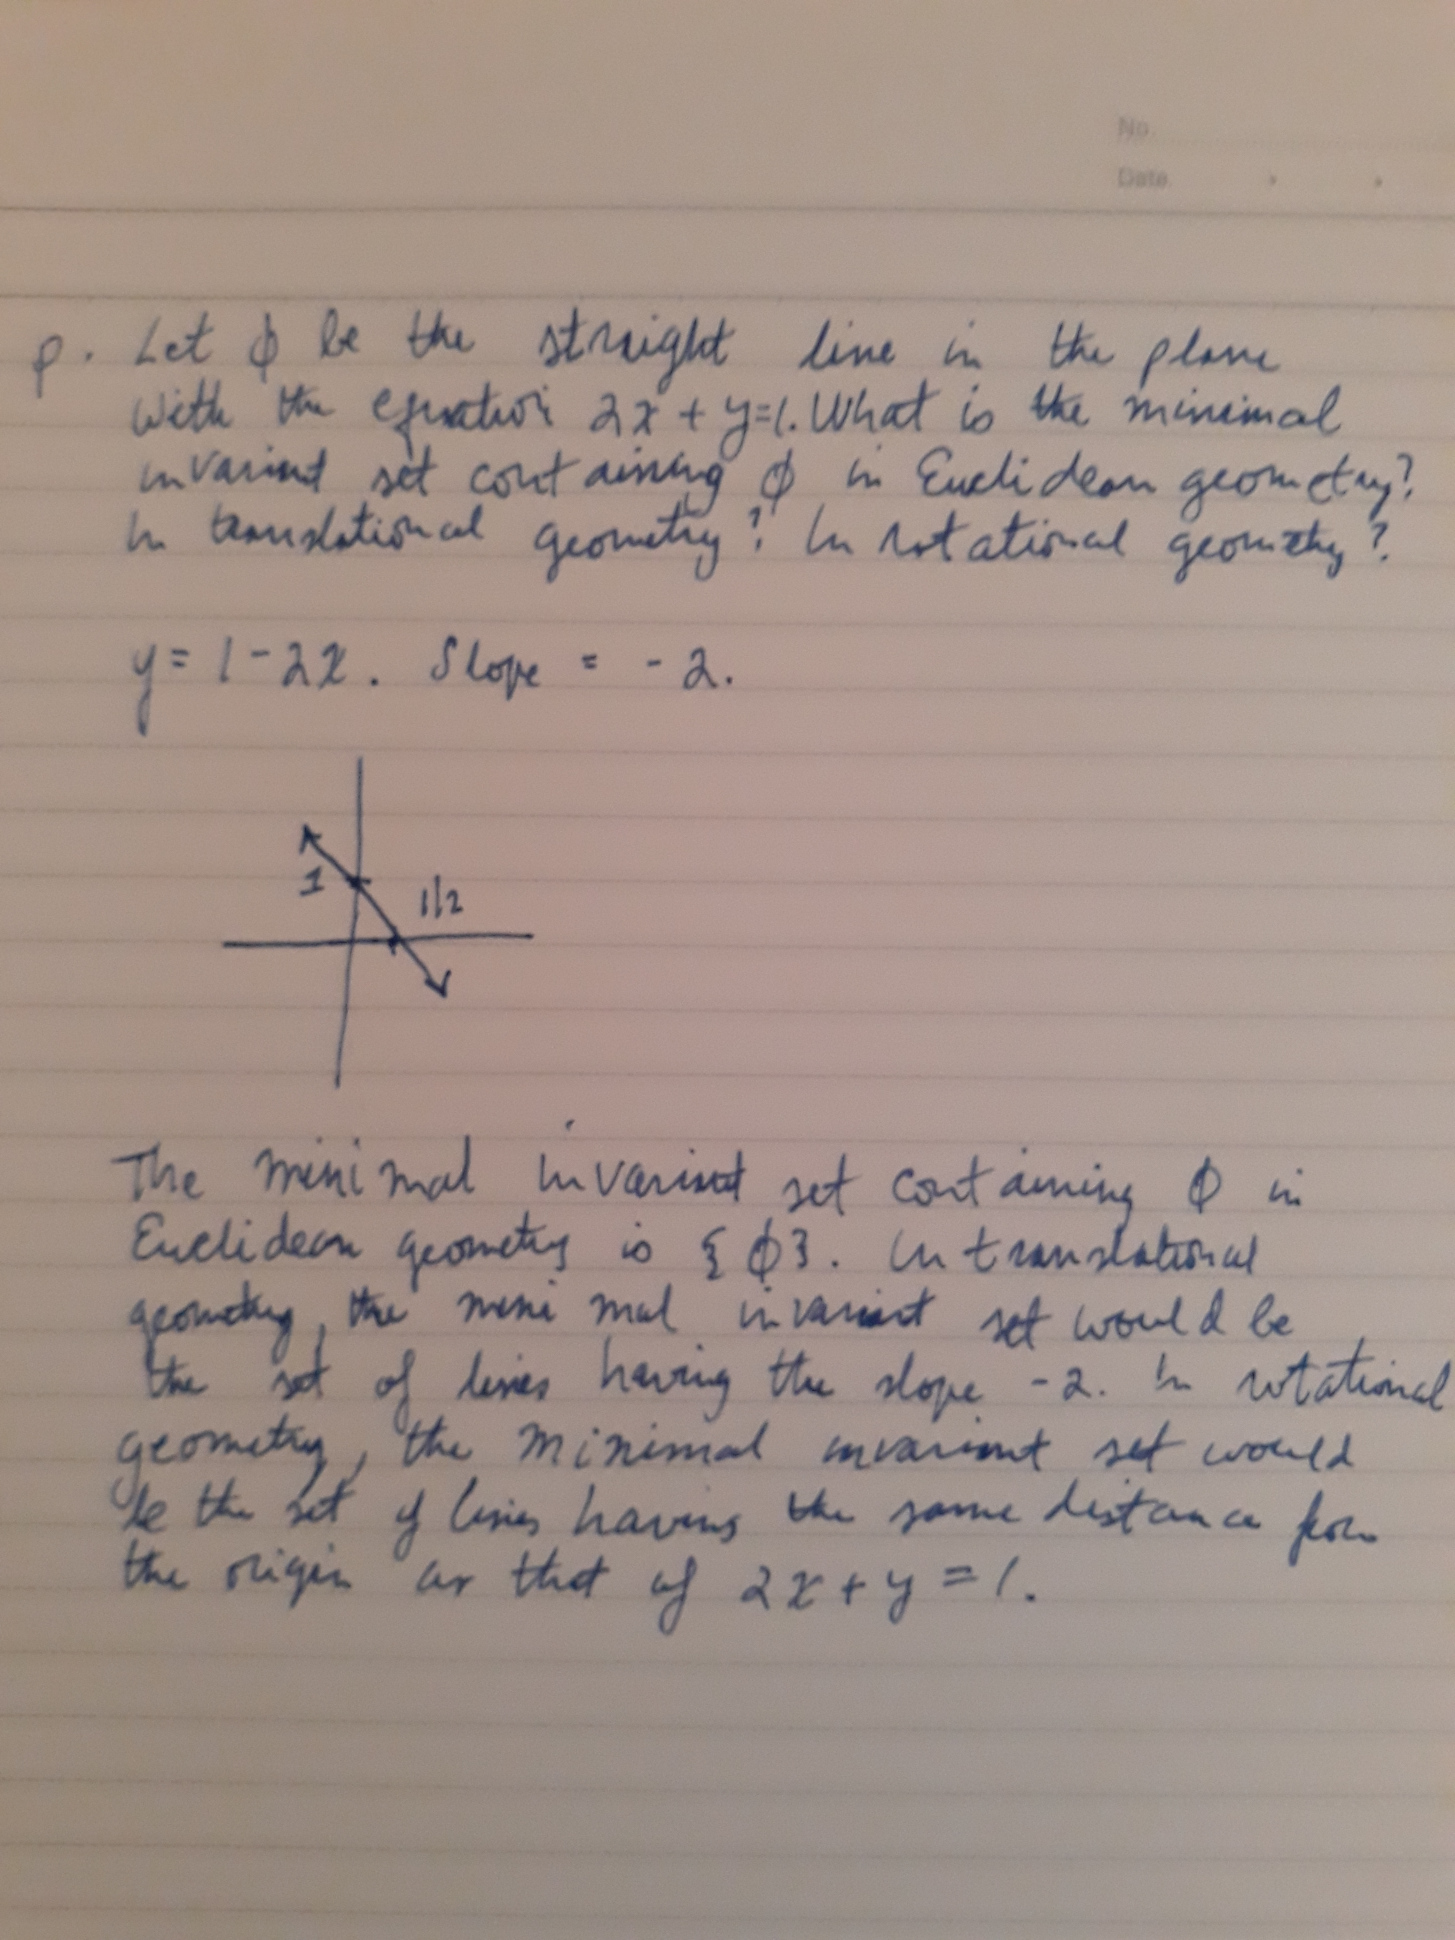 No.
Date
p. Let ϕ be the straight line in the plane
with the equation 2x + y=1. What is the minimal
invariant set containing ϕ in Euclidean geometry?
In translational geometry? In rotational geometry?
y = 1 - 2x. Slope = - 2.
1
1/2
The minimal invariant set containing ϕ in
Euclidean geometry is {ϕ}. In translational
geometry, the minimal invariant set would be
the set of lines having the slope -2. In rotational
geometry, the minimal invariant set would
be the set of lines having the same distance from
the origin as that of 2x + y = 1.